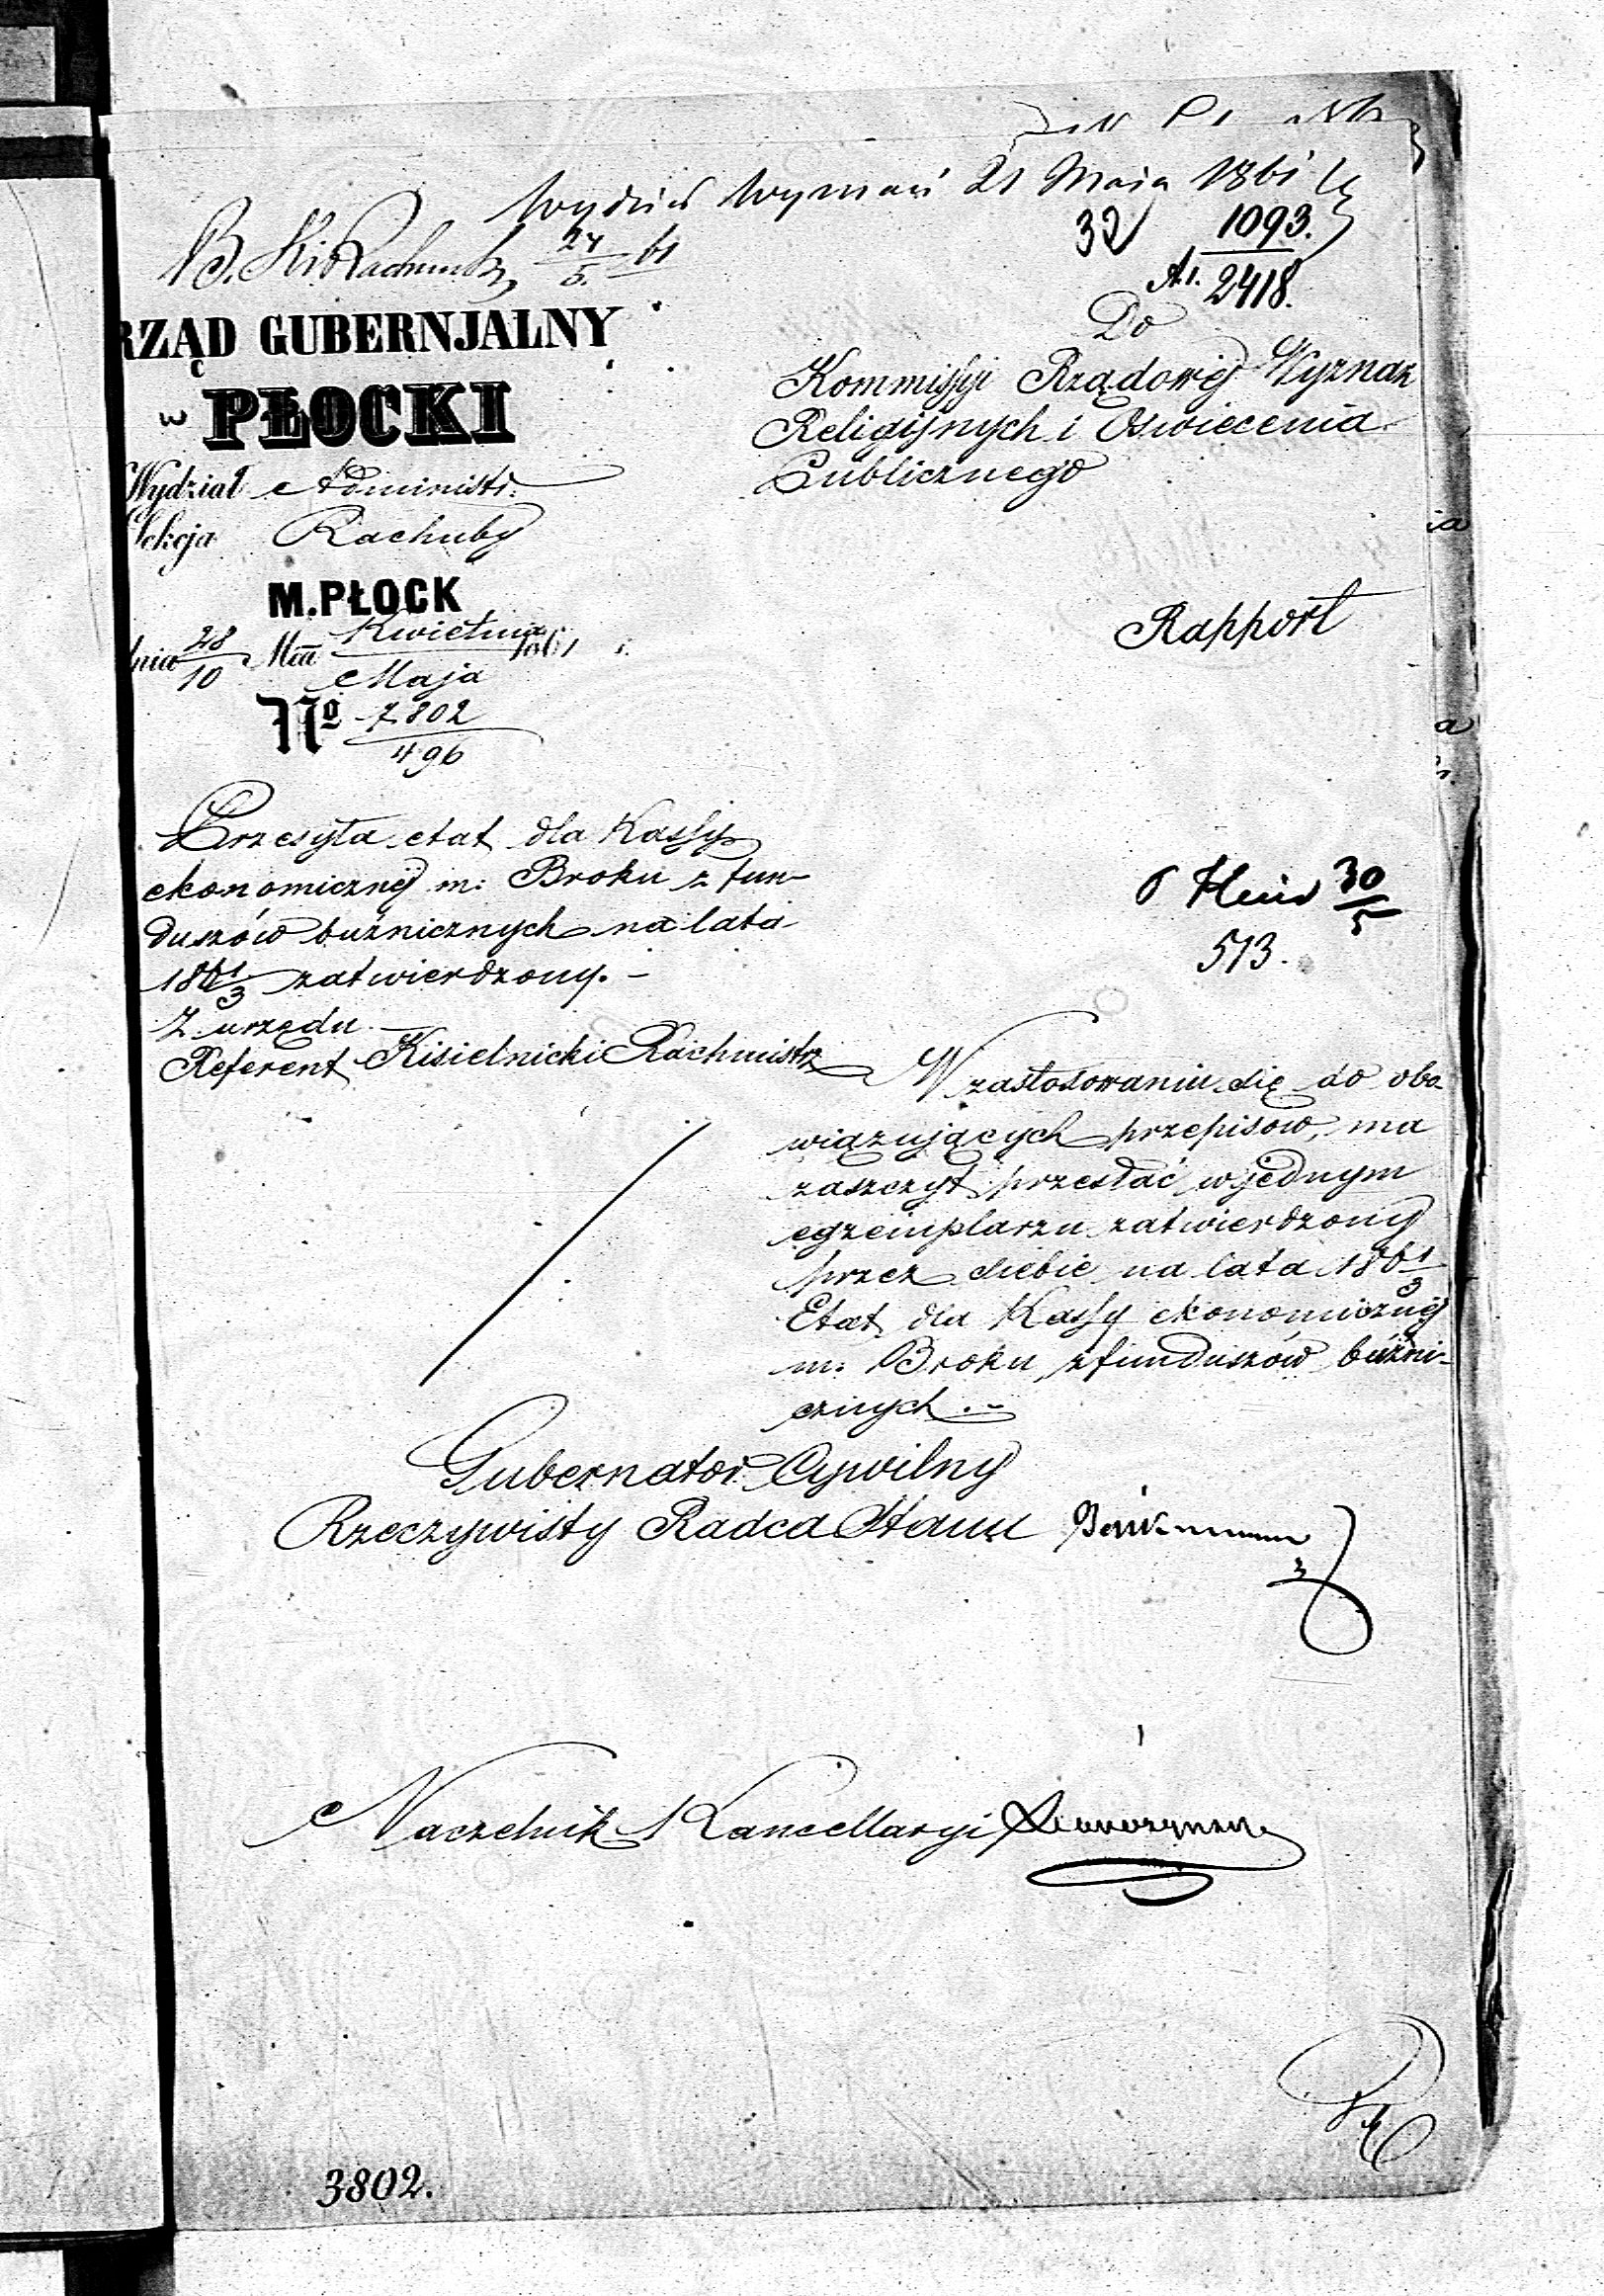 Wydział Wyznań 21 Maja 1861
32 1093.
2418.
24/5. 61
RZĄD GUBERNJALNY
w PŁOCKI
Wydział Administr:
Sekcja Rachuby
M. PŁOCK
dnia 28/10 Mca Kwietnia/Maja 1861 r.
No 7802/496
Do
Kommissyi Rządowej Wyznań
Religijnych i Oswiecenia
Publicznego
Rapport
Przesyła etat dla Kassy
ekonomicznej m: Broku z fun-
duszów bużnicznych na lata
1861/3 zatwierdzony. –
Z urzędu.
Referent Kisielnicki Rachmistrz
30/5
513.
W zastosowaniu się do obo-
wiązujących przepisow, ma
zaszczyt przesłać w jednym
egzemplarzu zatwierdzony
przez siebie na lata 1861/3
Etat dla Kassy ekonomicznej
m: Broku z funduszów bużni-
cznych. –
Gubernator Cywilny
Rzeczywisty Radca Stanu
Naczelnik Kancellaryi
3802.